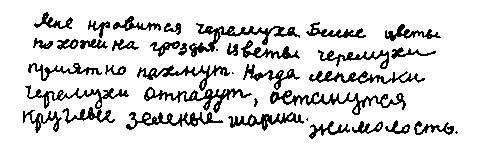 Мне нравится черемуха. Белые цветы
похожи на гроздья. Цветы черемухи
приятно пахнут. Когда лепестки
черемухи отпадут, останутся
круглые зеленые шарики.
жимолость.